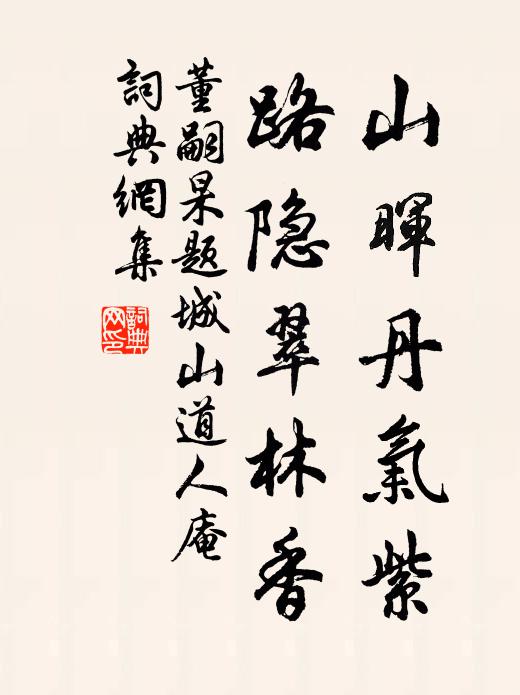 山暉丹氣紫
路隐翠林香
董嗣杲题城山道人庵
詞典網集
詞典网印